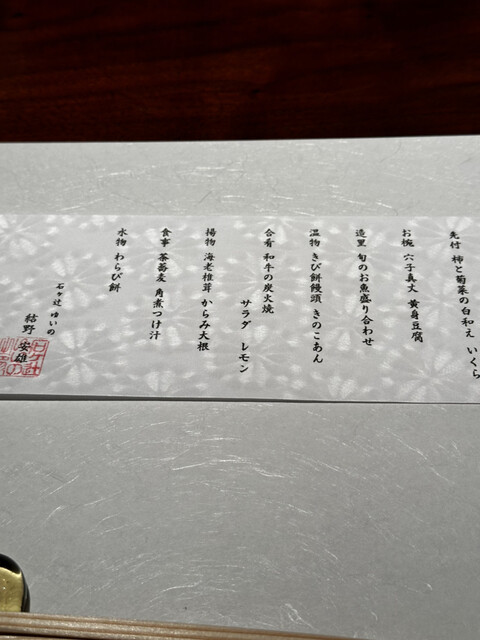 先付 柿と菊菜の白和え いくら
お椀 穴子真丈 黄身豆腐
造里 旬のお魚盛り合わせ
温物 きび餅饅頭 きのこあん
合肴 和牛の炭火焼
サラダ レモン
揚物 海老椎茸 からみ大根
食事 茶蕎麦 角煮つけ汁
水物 わらび餅
石ヶ辻 ゆいの
結野 安雄